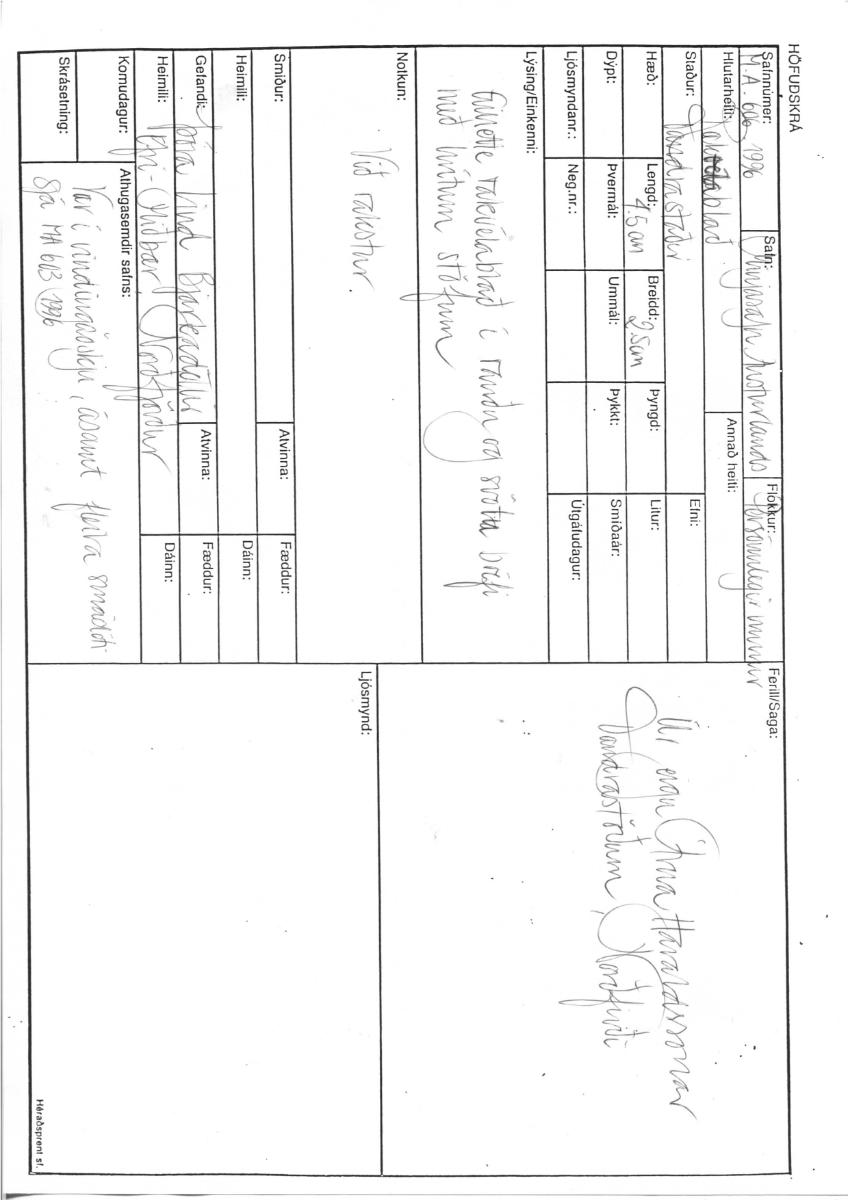 HÖFUÐSKRÁ
Safnnúmer: M.A. 606. 1996 Safn: Minjasafn Austurlands Flokkur: Persónulegir munir
Hlutarheiti: Rakvélablað Annað heiti:
Staður: Vandrastaðir Efni:
Hæð: Lengd: 4.5 cm Breidd: 2.5 cm Þyngd: Litur:
Dýpt: Þvermál: Ummál: Þykkt: Smíðaár:
Ljósmyndanr.: Neg.nr.: Útgáfudagur:
Lýsing/Einkenni:
rakvélablað í rauðu og svörtu bréfi
með hvítum stöfum
Notkun:
Við rakstur.
Smiður: Atvinna: Fæddur:
Heimili: Dáinn:
Gefandi: Þóra Lind Bjarkadóttir Atvinna: Fæddur:
Heimili: Efri-Miðbær, Norðfjörður Dáinn:
Komudagur: Athugasemdir safns:
Var í vindingaöskju, ásamt fleira smádóti
Skrásetning: Sjá MA 613 1996
Ferill/Saga:
Úr eigu Árna Haraldssonar
Vandrastöðum, Norðfirði
Ljósmynd:
Héraðsprent sf.